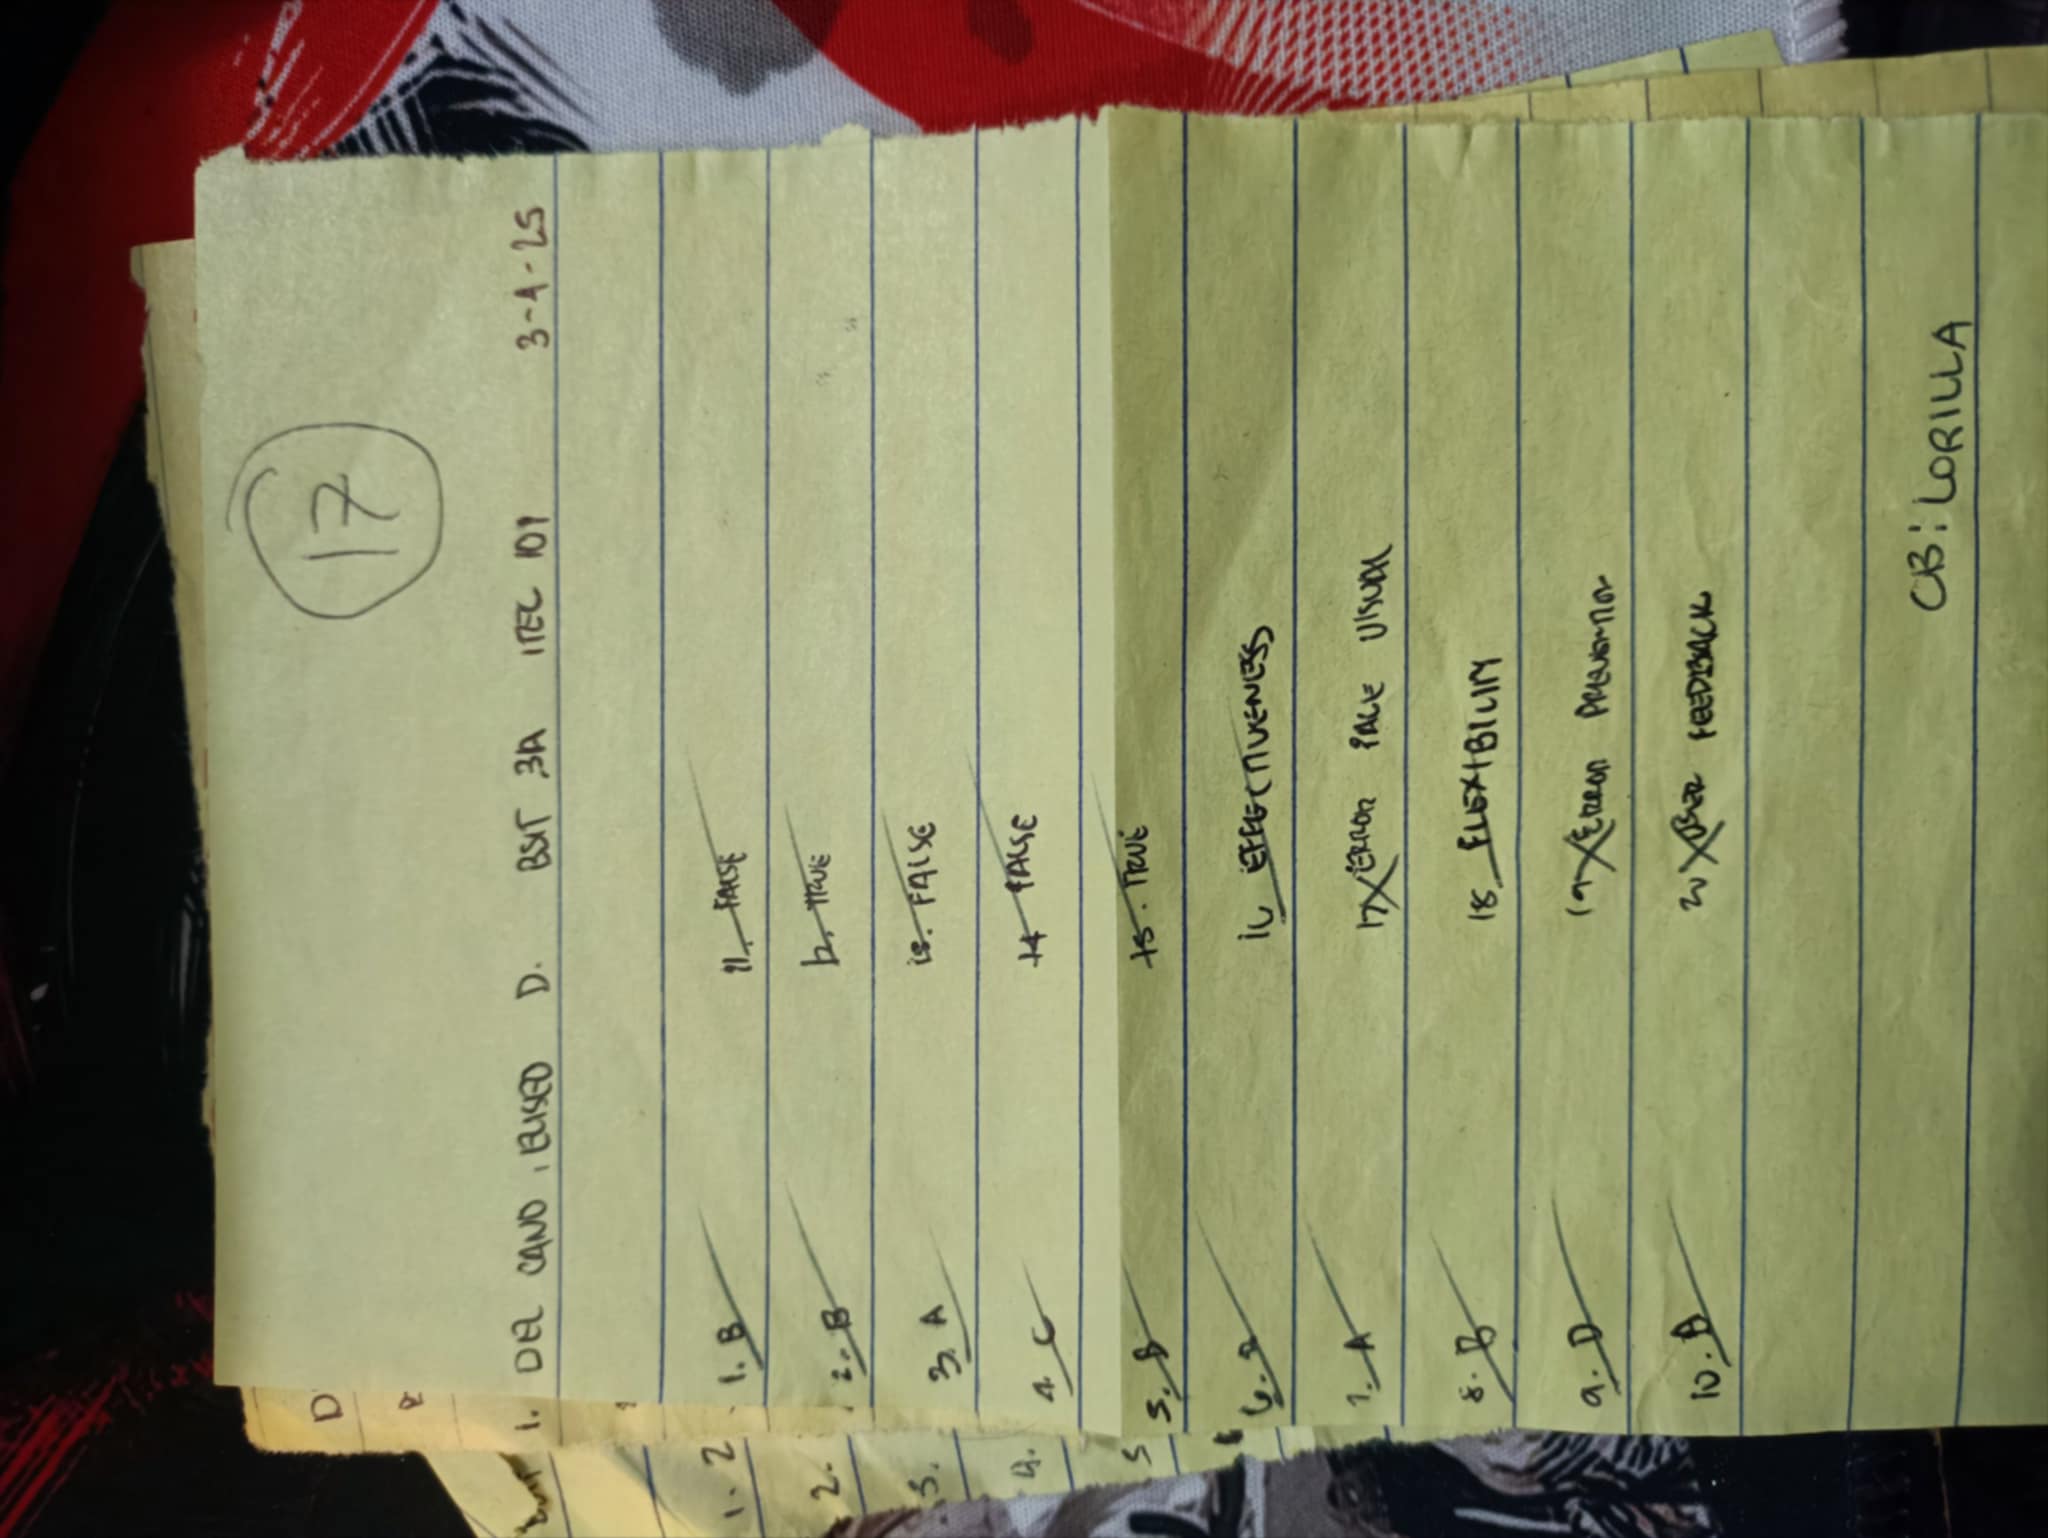 17
DEL CANO, ELISED D. BSIT 3A ITEC 101 3-4-25
1. B
2. B
3. A
4. C
5. B
6.
7. A
8. B
9. D
10. B
11. FALSE
12. TRUE
13. FALSE
14 FALSE
15. TRUE
16 EFFECTIVENESS
17 ERROR FACE VISUAL
18 FLEXIBILITY
19 ERROR PREVENTION
20 USER FEEDBACK
CB: LORILLA
D
1.
1. 2
2.
3.
4.
5